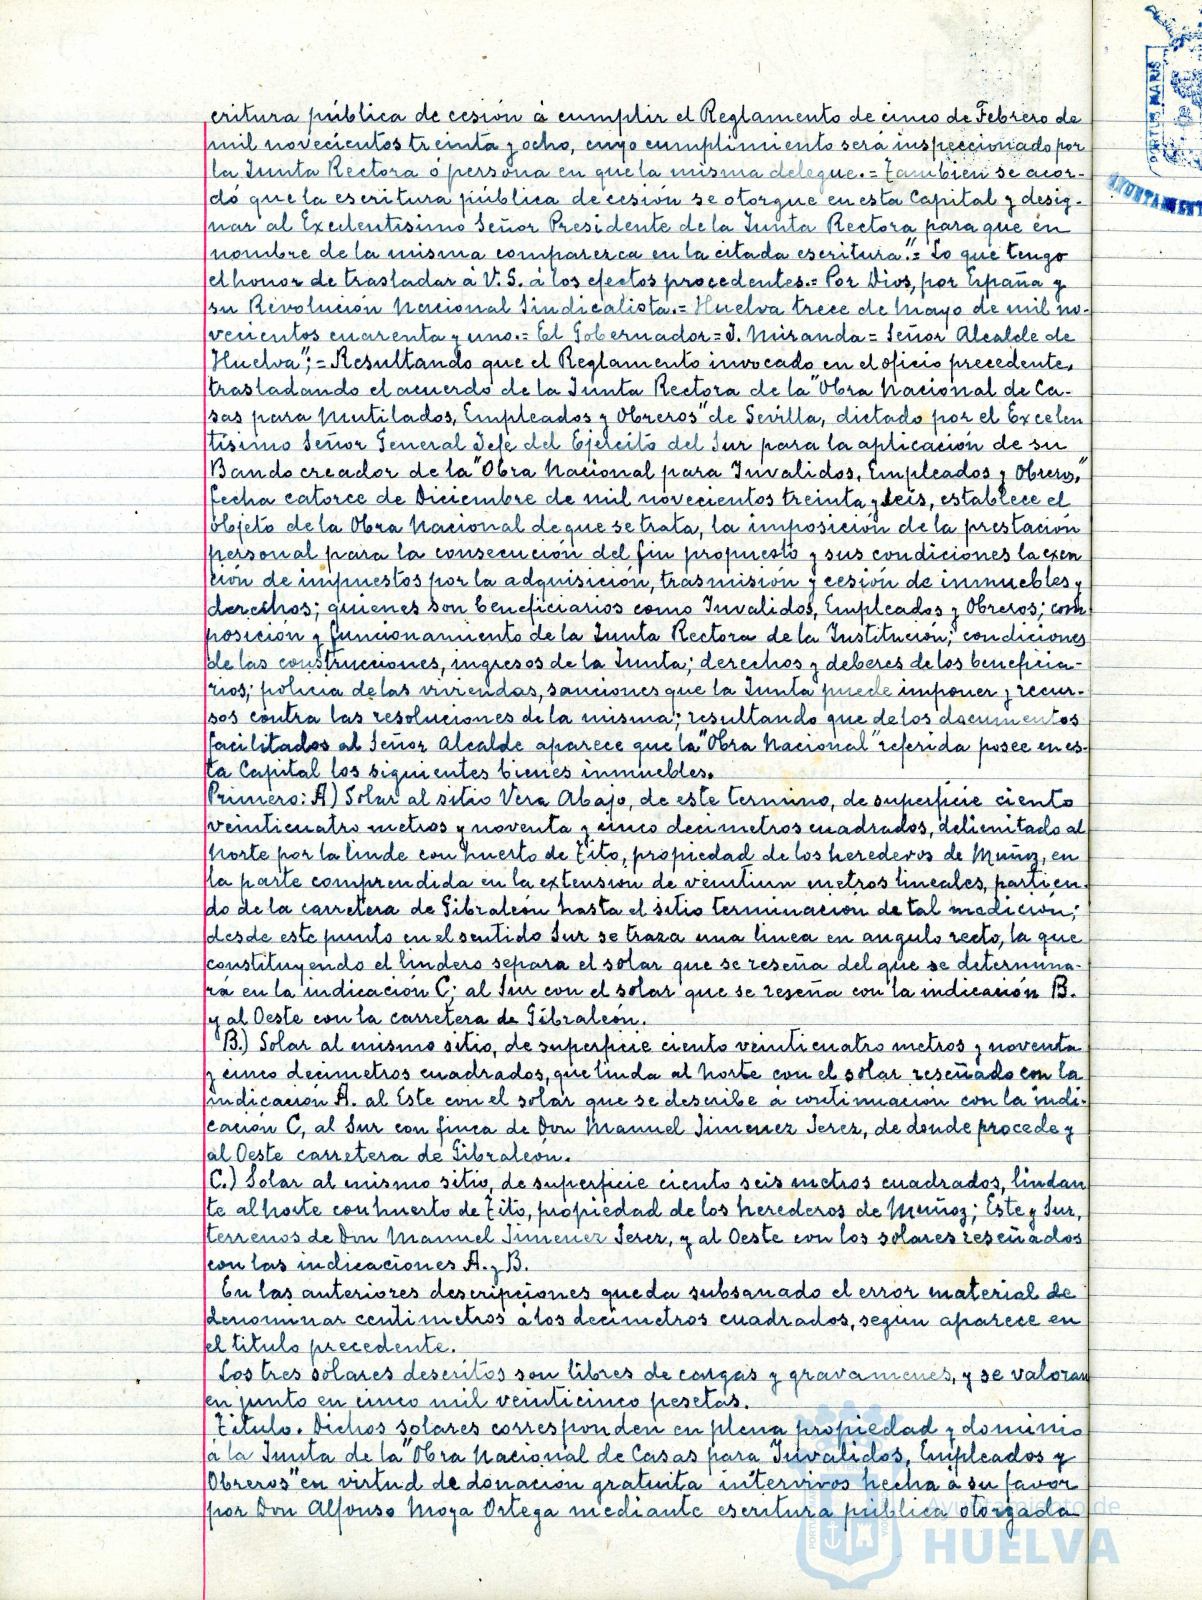 critura pública de cesión á cumplir el Reglamento de cinco de Febrero de
mil novecientos treinta y ocho, cuyo cumplimiento será inspeccionado por
la Junta Rectora ó persona en que la misma delegue.= Tambien se acor-
dó que la escritura pública de cesión se otorgue en esta Capital y desig-
nar al Excelentisimo Señor Presidente de la Junta Rectora para que en
nombre de la misma comparezca en la citada escritura".= Lo que tengo
el honor de trasladar á V. S. á los efectos procedentes.= Por Dios, por España y
su Revolución Nacional Sindicalista.= Huelva trece de Mayo de mil no-
vecientos cuarenta y uno.= El Gobernador = J. Miranda = Señor Alcalde de
Huelva"; = Resultando que el Reglamento invocado en el oficio precedente,
trasladando el acuerdo de la Junta Rectora de la "Obra Nacional de Ca-
sas para Mutilados, Empleados y Obreros" de Sevilla, dictado por el Excelen
tisimo Señor General Jefe del Ejercito del Sur para la aplicación de su
Bando creador de la "Obra Nacional para Invalidos, Empleados y Obreros,"
fecha catorce de Diciembre de mil novecientos treinta y seis, establece el
objeto de la Obra Nacional de que se trata, la imposición de la prestación
personal para la consecución del fin propuesto y sus condiciones la exen
ción de impuestos por la adquisición, trasmisión y cesión de inmuebles y
derechos; quienes son beneficiarios como Invalidos, Empleados y Obreros; com
posición y funcionamiento de la Junta Rectora de la Institución; condiciones
de las construcciones, ingresos de la Junta; derechos y deberes de los beneficia-
rios; policia de las viviendas, sanciones que la Junta puede imponer y recur-
sos contra las resoluciones de la misma; resultando que de los documentos
facilitados al Señor Alcalde aparece que la "Obra Nacional" referida posee en es-
ta Capital los siguientes bienes inmuebles.
Primero: A) Solar al sitio Vera Abajo, de este termino, de superficie ciento
veinticuatro metros y noventa y cinco decimetros cuadrados, delimitado al
Norte por la linde con huerto de Tito, propiedad de los herederos de Muñoz, en
la parte comprendida en la extension de veintiun metros lineales, partien-
do de la carretera de Gibraleón hasta el sitio terminacion de tal medición;
desde este punto en el sentido Sur se traza una linea en angulo recto, la que
constituyendo el lindero separa el solar que se reseña del que se determina-
rá en la indicación C; al Sur con el solar que se reseña con la indicación B.
y al Oeste con la carretera de Gibraleón.
B.) Solar al mismo sitio, de superficie ciento veinticuatro metros y noventa
y cinco decimetros cuadrados, que linda al Norte con el solar reseñado con la
indicación A. al Este con el solar que se describe á continuación con la indi-
cación C, al Sur con finca de Don Manuel Jimenez Jerez, de donde procede y
al Oeste carretera de Gibraleón.
C.) Solar al mismo sitio, de superficie ciento seis metros cuadrados, lindan
te al Norte con huerto de Tito, propiedad de los herederos de Muñoz; Este y Sur,
terrenos de Don Manuel Jimenez Jerez, y al Oeste con los solares reseñados
con las indicaciones A. y B.
En las anteriores descripciones queda subsanado el error material de
denominar centimetros a los decimetros cuadrados, según aparece en
el titulo precedente.
Los tres solares descritos son libres de cargas y gravamenes, y se valoran
en junto en cinco mil veinticinco pesetas.
Titulo. Dichos solares corresponden en plena propiedad y dominio
á la Junta de la "Obra Nacional de Casas para Invalidos, Empleados y
Obreros" en virtud de donación gratuita intervivos hecha á su favor
por Don Alfonso Moya Ortega mediante escritura pública otorgada
Ayuntamiento de
HUELVA